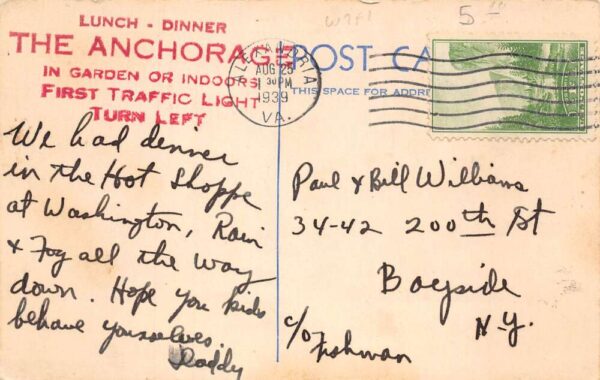 LUNCH - DINNER
THE ANCHORAGE
IN GARDEN OR INDOORS
FIRST TRAFFIC LIGHT
TURN LEFT
W271
5
POST CA
THIS SPACE FOR ADDRE
ALEXANDRIA
AUG 25
1 30 PM
1939
VA.
We had dinner
in the Hot Shoppe
at Washington, Rain
& Fog all the way
down. Hope you kids
behave yourselves.
Daddy
Paul & Bill Williams
34-42 200th St
Bayside
N-Y.
c/o
Fishman